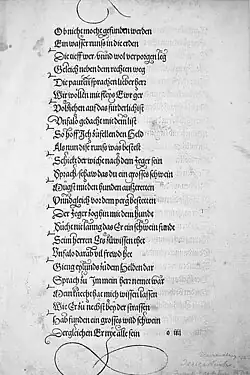 Ob nicht mocht gefunden werden
Ein wasser runs in die erden
Die tieff wer / vnnd wol verporgen leg
Geleich neben dem rechten weg
Die pauren sprachen lieber herr
Wir wollen mit fleys Ewr ger
Volziehen auf das fürderlichist
Vnfalo gedacht mit dem list
So hoff Ich zufellen den Held
Als nun die runs was bestelt
Schickt der wicht nach dem Jeger sein
Sprach / schaw das du ein grosses schwein
Mugst mit den hunden
Vnndgleich vor dem perg besteten
Der Jeger zog hin mit dem hundt
Nicht lanng das Er ein schwein fundt
Seinen herren Er wissen ther
Vnfalo darab vil frewd het
Gieng eylends zu dem Helden dar
Sprach zu Im mein herr nemet war
Mein knecht hat mich wissen lassen
Wie Er zu nechst bey der strassen
Hab funden ein grosses wild schwein
Dergleichen Er nye alle sein